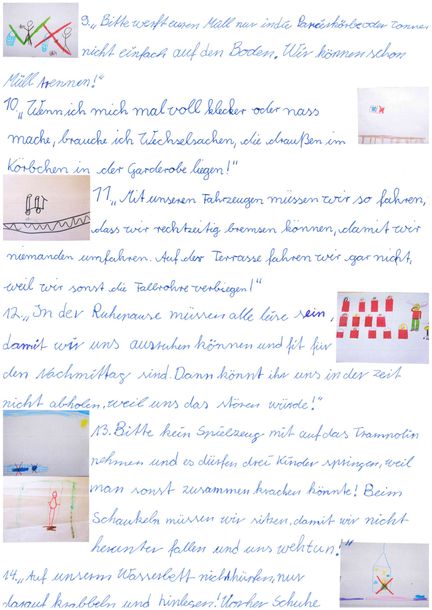 9. „Bitte werft euren Müll nur in die Papierkörbe oder Tonnen
nicht einfach auf den Boden. Wir können schon
Müll trennen!"
10. „Wenn ich mich mal voll klecker oder nass
mache, brauche ich Wechselsachen, die draußen im
Körbchen in der Garderobe liegen!"
11. „Mit unseren Fahrzeugen müssen wir so fahren,
dass wir rechtzeitig bremsen können, damit wir
niemanden umfahren. Auf der Terrasse fahren wir gar nicht,
weil wir sonst die Fallrohre verbiegen!"
12. „In der Ruhepause müssen alle leise sein,
damit wir uns ausruhen können und fit für
den Nachmittag sind. Dann könnt ihr uns in der Zeit
nicht abholen, weil uns das stören würde!"
13. Bitte kein Spielzeug mit auf das Trampolin
nehmen und es dürfen drei Kinder springen, weil
man sonst zusammen krachen könnte! Beim
Schaukeln müssen wir sitzen, damit wir nicht
herunter fallen und uns wehtun!"
14. „Auf unserem Wasserbett nicht hüpfen, nur
darauf krabbeln und hinlegen! Vorher Schuhe